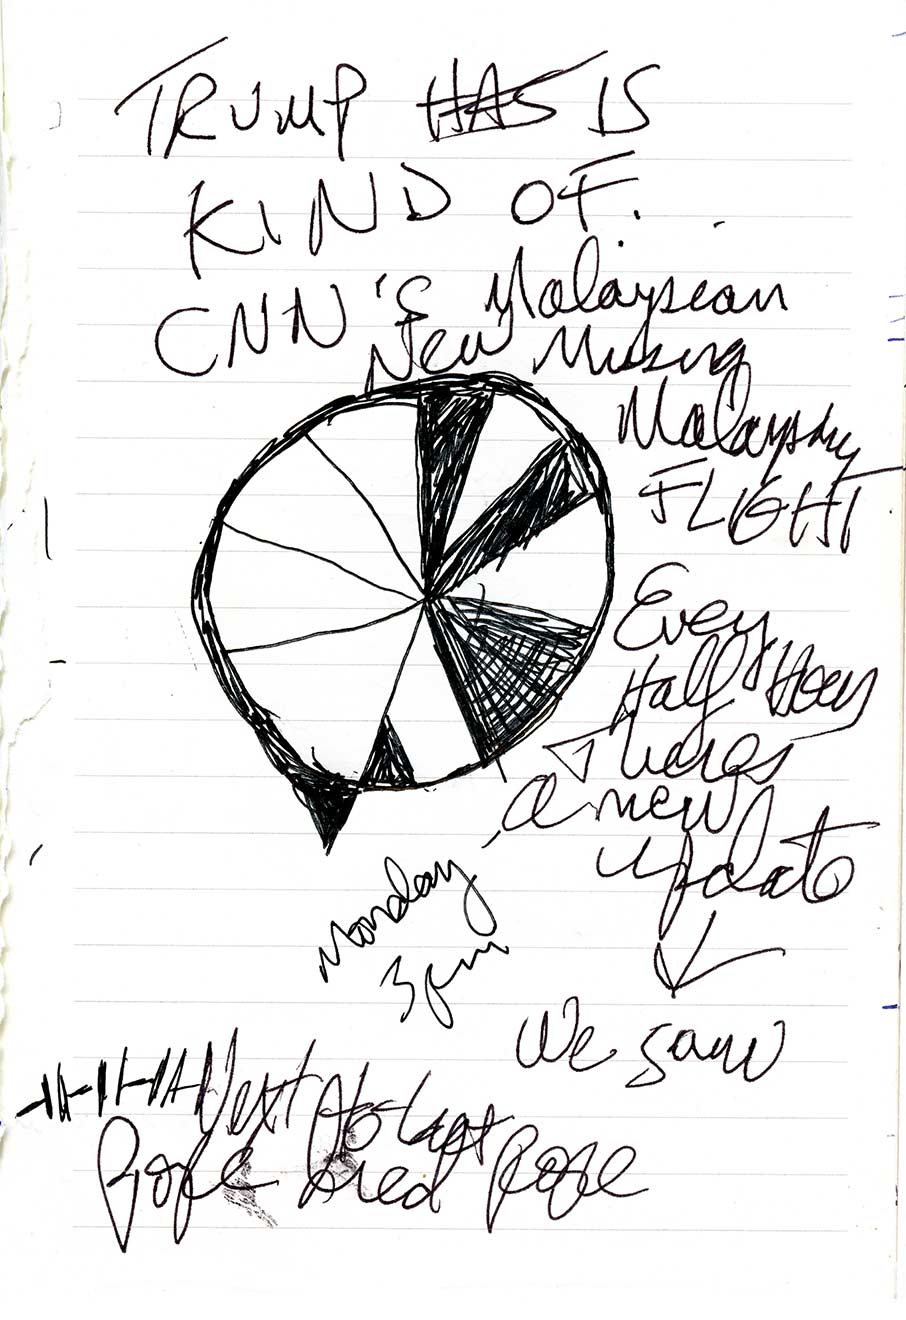 TRUMP HAS IS
KIND OF.
CNN'S Malaysean
New Missing
Malaysian
FLIGHT
Every
Half Hour
theres
a new
update
We saw
Monday
3pm
Next to last
Pope died Pope